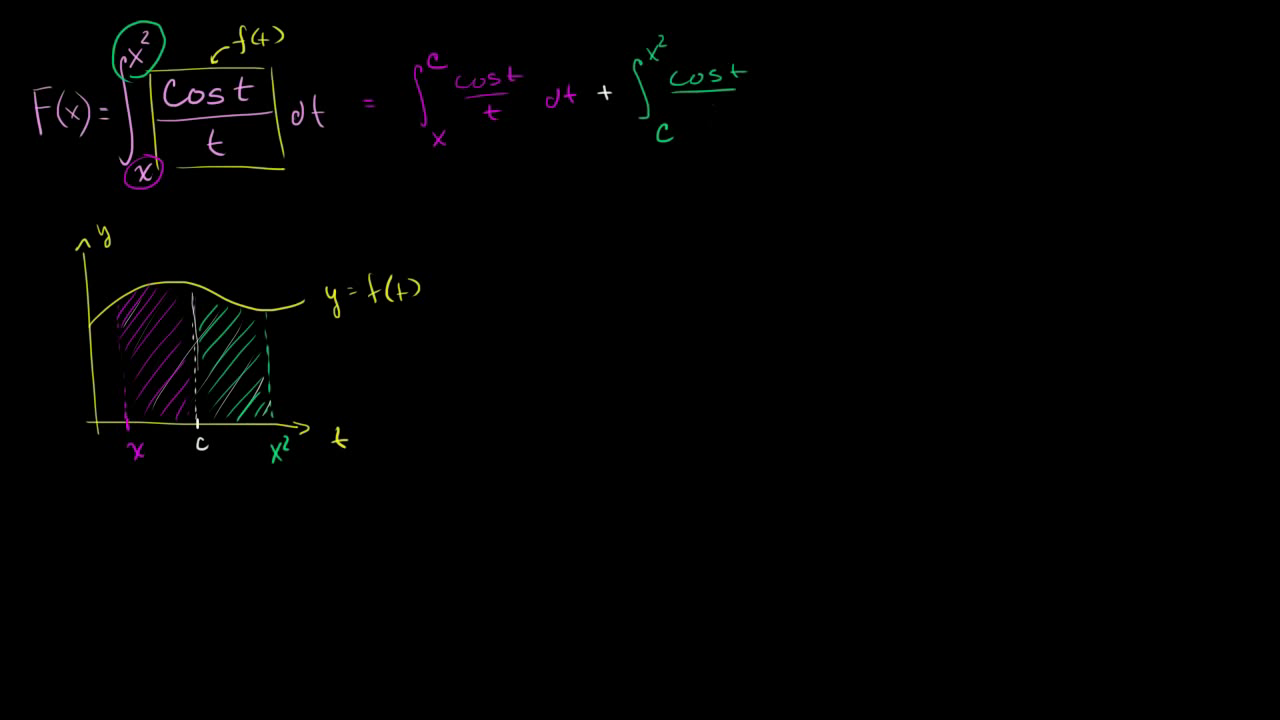 f(t)
F(x) = ∫ₓ^x² cos t / t dt = ∫ₓ^c cos t / t dt + ∫_c^x² cos t
y
y = f(t)
x c x² t